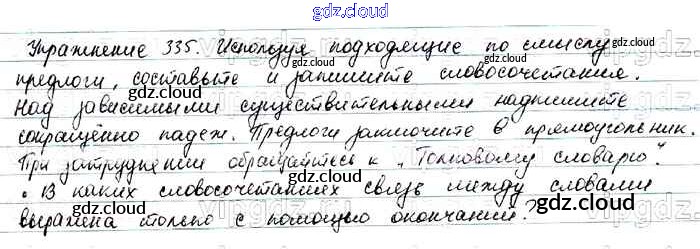 gdz.cloud
Упражнение 335. Используя подходящие по смыслу
предлоги, составьте и запишите словосочетания.
Над зависимыми существительными надпишите
сокращённо падеж. Предлоги заключите в прямоугольник.
При затруднении обращайтесь к „Толковому словарю".
• В каких словосочетаниях связь между словами
выражена только с помощью окончания?